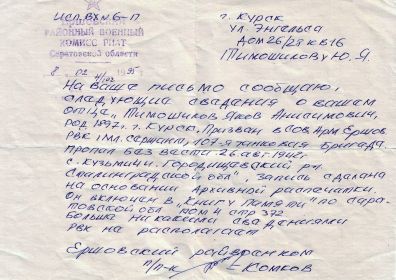 Исп. вх. № 6-П
ЕРШОВСКИЙ
РАЙОННЫЙ ВОЕННЫЙ
КОМИССАРИАТ
Саратовской области
г. Курск
ул. Энгельса
дом 26/29 кв 16
Тимошикову Ю.Я.
На ваше письмо сообщаю,
следующие сведения о вашем
отце, "Тимошиков Яков Анисимович,
род 1897 г. г. Курск. Призван в Сов. Арм Ершов
РВК; мл. сержант, 107-я танковая бригада.
Пропал без вести 26 авг. 1942г.
с. Кузьмичи. Городищенский рн,
Сталинградской обл", запись сделана
на основании Архивной распечатки.
Он включен в "Книгу Памяти" по сара-
товской обл том 4 стр 372
больше никакими сведениями
РВК не располагает
Ершовский райвоенком
п/п-к Комков